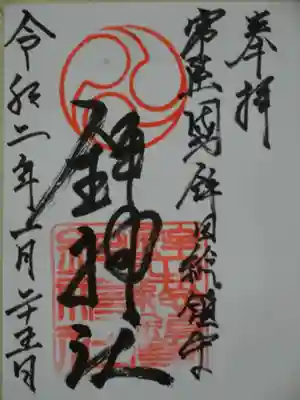 奉拝
常陸國鉾田総鎮守
鉾神社
令和二年 月二十五日